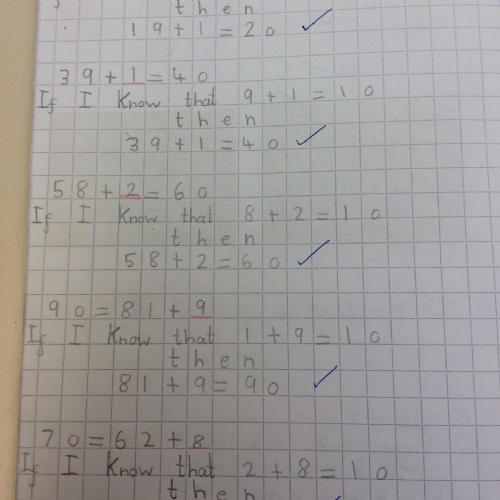 then
19+1=20
39+1=40
If I Know that 9+1=10
then
39+1=40
58+2=60
If I Know that 8+2=10
then
58+2=60
90=81+9
If I Know that 1+9=10
then
81+9=90
70=62+8
If I Know that 2+8=10
then